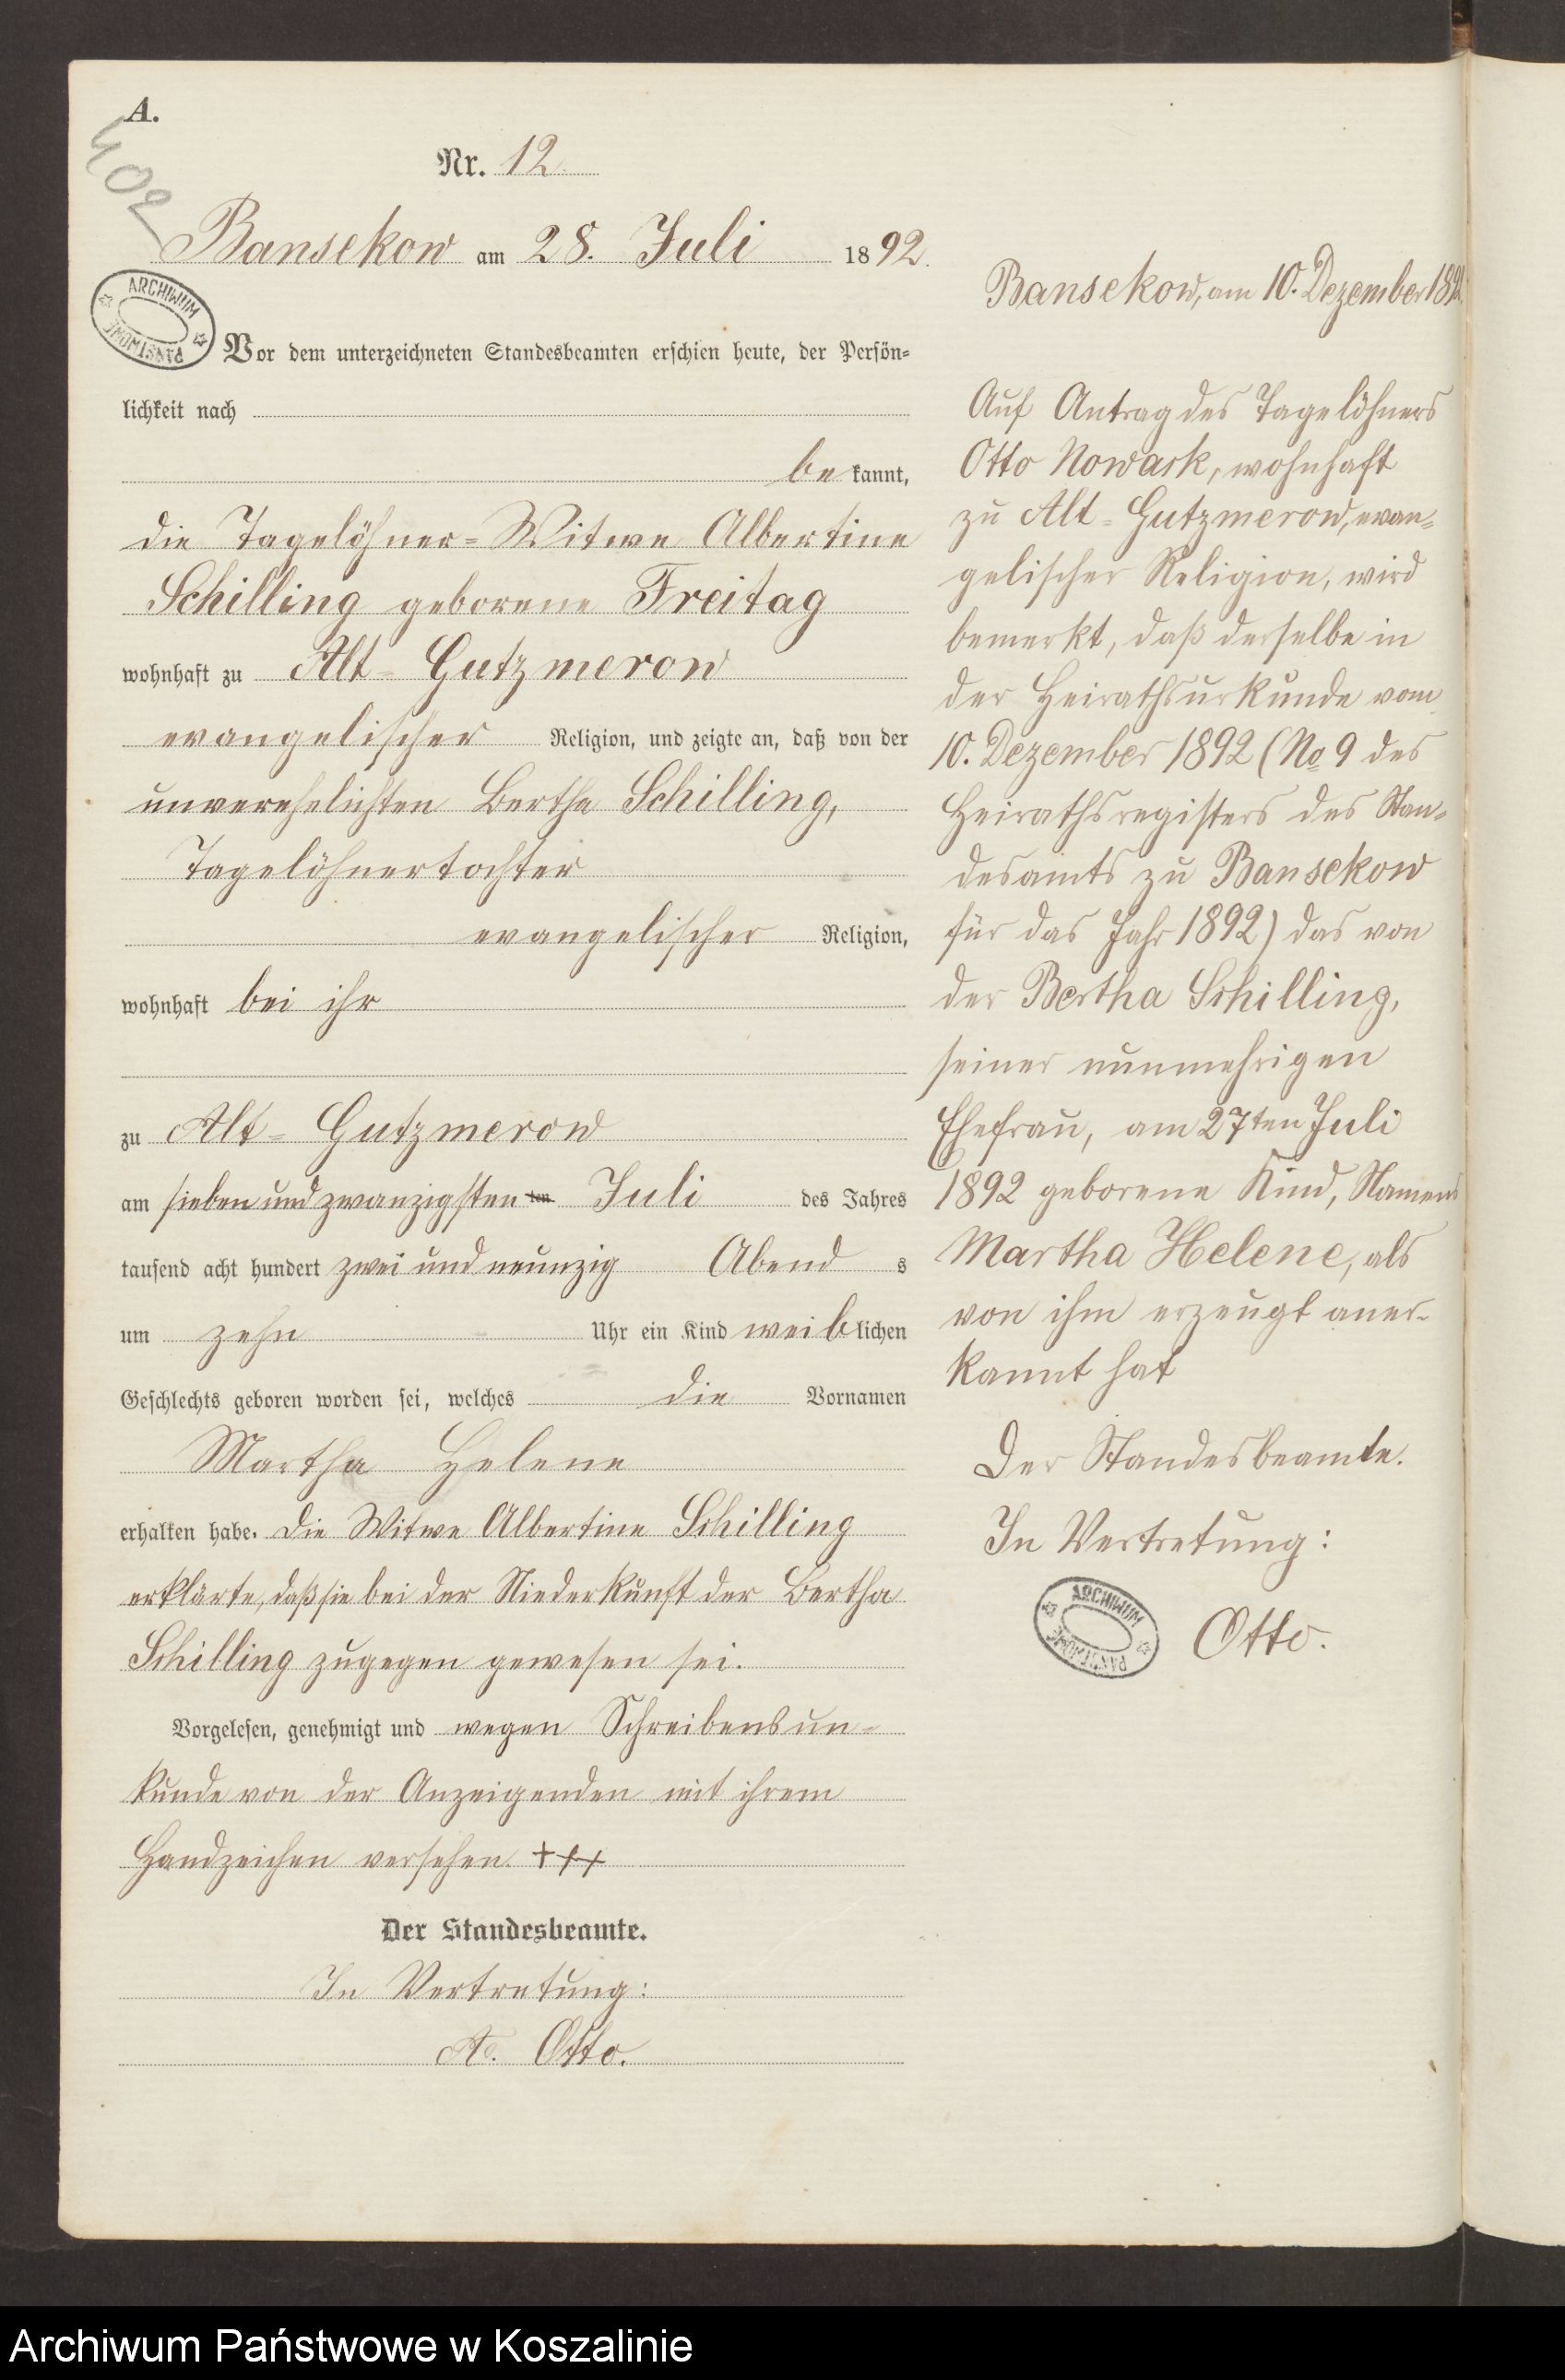 A.
402
Nr. 12.
Bansekow am 28. Juli 1892.
ARCHIWUM PAŃSTWOWE
Vor dem unterzeichneten Standesbeamten erschien heute, der Persön-
lichkeit nach
be kannt,
die Tagelöhner-Witwe Albertine
Schilling geborene Freitag
wohnhaft zu Alt-Gutzmerow
evangelischer Religion, und zeigte an, daß von der
unverehelichten Bertha Schilling,
Tagelöhnertochter
evangelischer Religion,
wohnhaft bei ihr
zu Alt-Gutzmerow
am sieben und zwanzigsten ten Juli des Jahres
tausend acht hundert zwei und neunzig Abend s
um zehn Uhr ein Kind weiblichen
Geschlechts geboren worden sei, welches die Vornamen
Martha Helene
erhalten habe. Die Witwe Albertine Schilling
erklärte, daß sie bei der Niederkunft der Bertha
Schilling zugegen gewesen sei.
Vorgelesen, genehmigt und wegen Schreibensun-
kunde von der Anzeigenden mit ihrem
Handzeichen versehen. +++
Der Standesbeamte.
In Vertretung:
A. Otto.
Bansekow, am 10. Dezember 1892.
Auf Antrag des Tagelöhners
Otto Nowack, wohnhaft
zu Alt-Gutzmerow, evan-
gelischer Religion, wird
bemerkt, daß derselbe in
der Heirathsurkunde vom
10. Dezember 1892 (No 9 des
Heirathsregisters des Stan-
desamts zu Bansekow
für das Jahr 1892) das von
der Bertha Schilling,
seiner nunmehrigen
Ehefrau, am 27ten Juli
1892 geborene Kind, Namens
Martha Helene, als
von ihm erzeugt aner-
kannt hat
Der Standesbeamte.
In Vertretung:
ARCHIWUM PAŃSTWOWE
Otto.
Archiwum Państwowe w Koszalinie